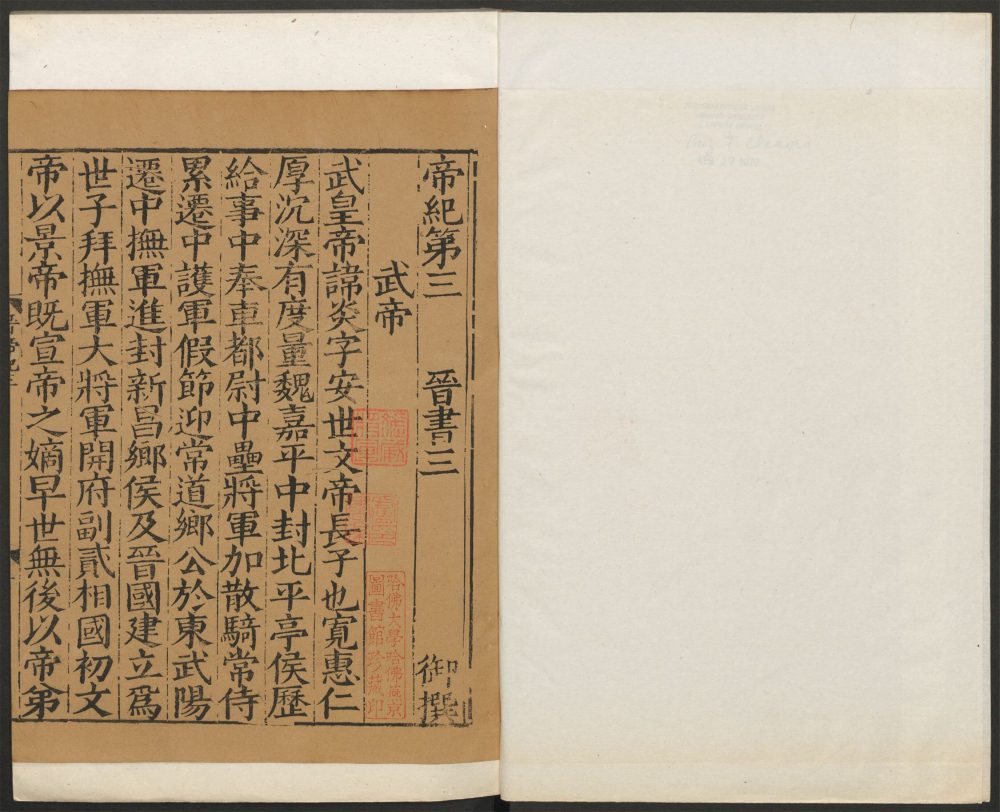 帝紀第三 晉書三 御撰
武帝
武皇帝諱炎字安世文帝長子也寬惠仁
厚沉深有度量魏嘉平中封北平亭侯歷
給事中奉車都尉中壘將軍加散騎常侍
累遷中護軍假節迎常道鄉公於東武陽
遷中撫軍進封新昌鄉侯及晉國建立爲
世子拜撫軍大將軍開府副貳相國初文
帝以景帝既宣帝之嫡早世無後以帝弟
哈佛大學哈佛燕京
圖書館珍藏印